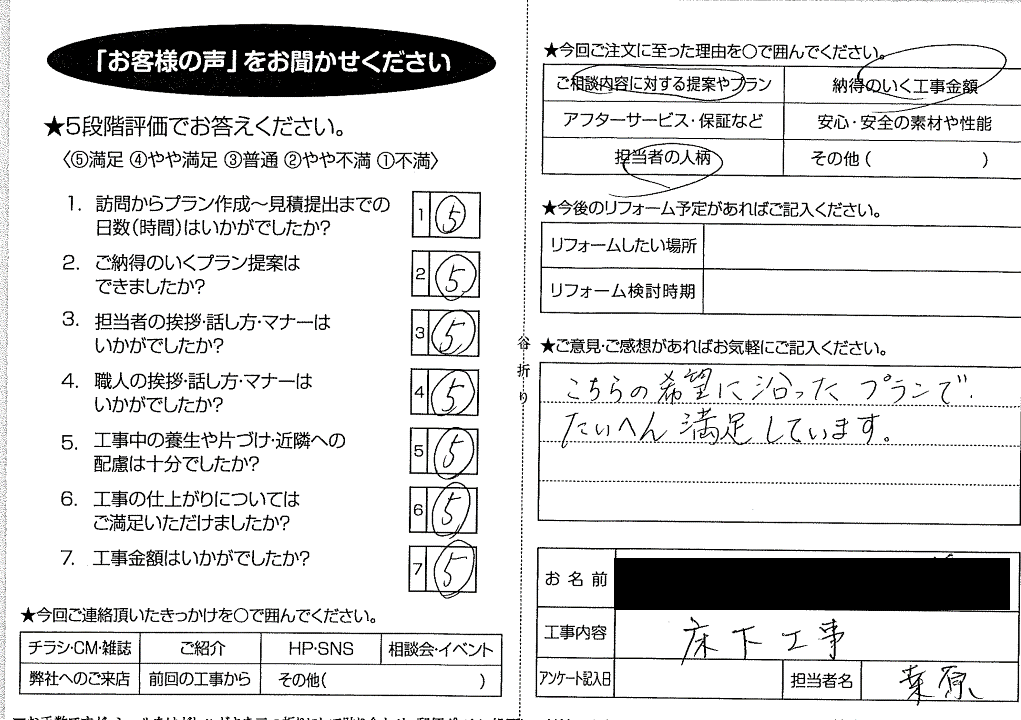 「お客様の声」をお聞かせください
★5段階評価でお答えください。
〈⑤満足 ④やや満足 ③普通 ②やや不満 ①不満〉
1. 訪問からプラン作成〜見積提出までの
日数(時間)はいかがでしたか?
1 5
2. ご納得のいくプラン提案は
できましたか?
2 5
3. 担当者の挨拶・話し方・マナーは
いかがでしたか?
3 5
4. 職人の挨拶・話し方・マナーは
いかがでしたか?
4 5
5. 工事中の養生や片づけ・近隣への
配慮は十分でしたか?
5 5
6. 工事の仕上がりについては
ご満足いただけましたか?
6 5
7. 工事金額はいかがでしたか?
7 5
★今回ご連絡頂いたきっかけを○で囲んでください。
チラシ・CM・雑誌 ご紹介 HP・SNS 相談会・イベント
弊社へのご来店 前回の工事から その他( )
谷折り
★今回ご注文に至った理由を○で囲んでください。
ご相談内容に対する提案やプラン 納得のいく工事金額
アフターサービス・保証など 安心・安全の素材や性能
担当者の人柄 その他( )
★今後のリフォーム予定があればご記入ください。
リフォームしたい場所
リフォーム検討時期
★ご意見・ご感想があればお気軽にご記入ください。
こちらの希望に沿ったプランで
たいへん満足しています。
お名前
工事内容 床下工事
アンケート記入日 担当者名 桒原